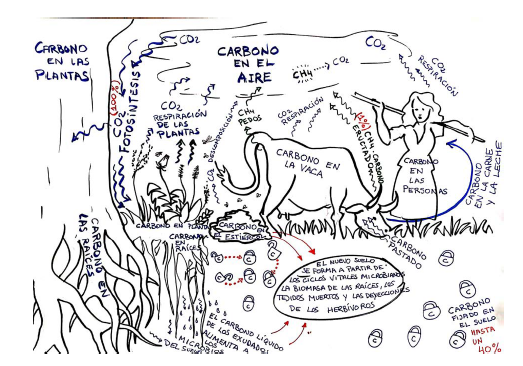 CARBONO
EN LAS
PLANTAS
CO2
CARBONO
EN EL
AIRE
CO2
CH4
CO2
CO2
RESPIRACIÓN
CO2 (100%)
FOTOSÍNTESIS
CO2
RESPIRACIÓN
DE LAS
PLANTAS
CO2 DESCOMPOSICIÓN
CH4
PEDOS
CO2
RESPIRACIÓN
CH4 CARBONO
ERUCTADO
CARBONO EN
LA VACA
CARBONO
EN LAS
PERSONAS
CARBONO
EN LA CARNE
Y LA LECHE
CARBONO
PASTADO
CARBONO EN PLANTA
CARBONO EN
ESTIÉRCOL
CARBONO
EN
RAÍCES
CARBONO EN
LAS RAÍCES
EL NUEVO SUELO
SE FORMA A PARTIR DE
LOS CICLOS VITALES MICROBIANOS
LA BIOMASA DE LAS RAÍCES, LOS
TEJIDOS MUERTOS Y LAS DEYECCIONES
DE LOS HERBÍVOROS
EL CARBONO LÍQUIDO
DE LOS EXUDADOS
ALIMENTA A
LOS
MICROBIOS
DEL SUELO
C
C
C
C
C
C
C
C
C
C
CARBONO
FIJADO EN
EL SUELO
HASTA
UN
40%